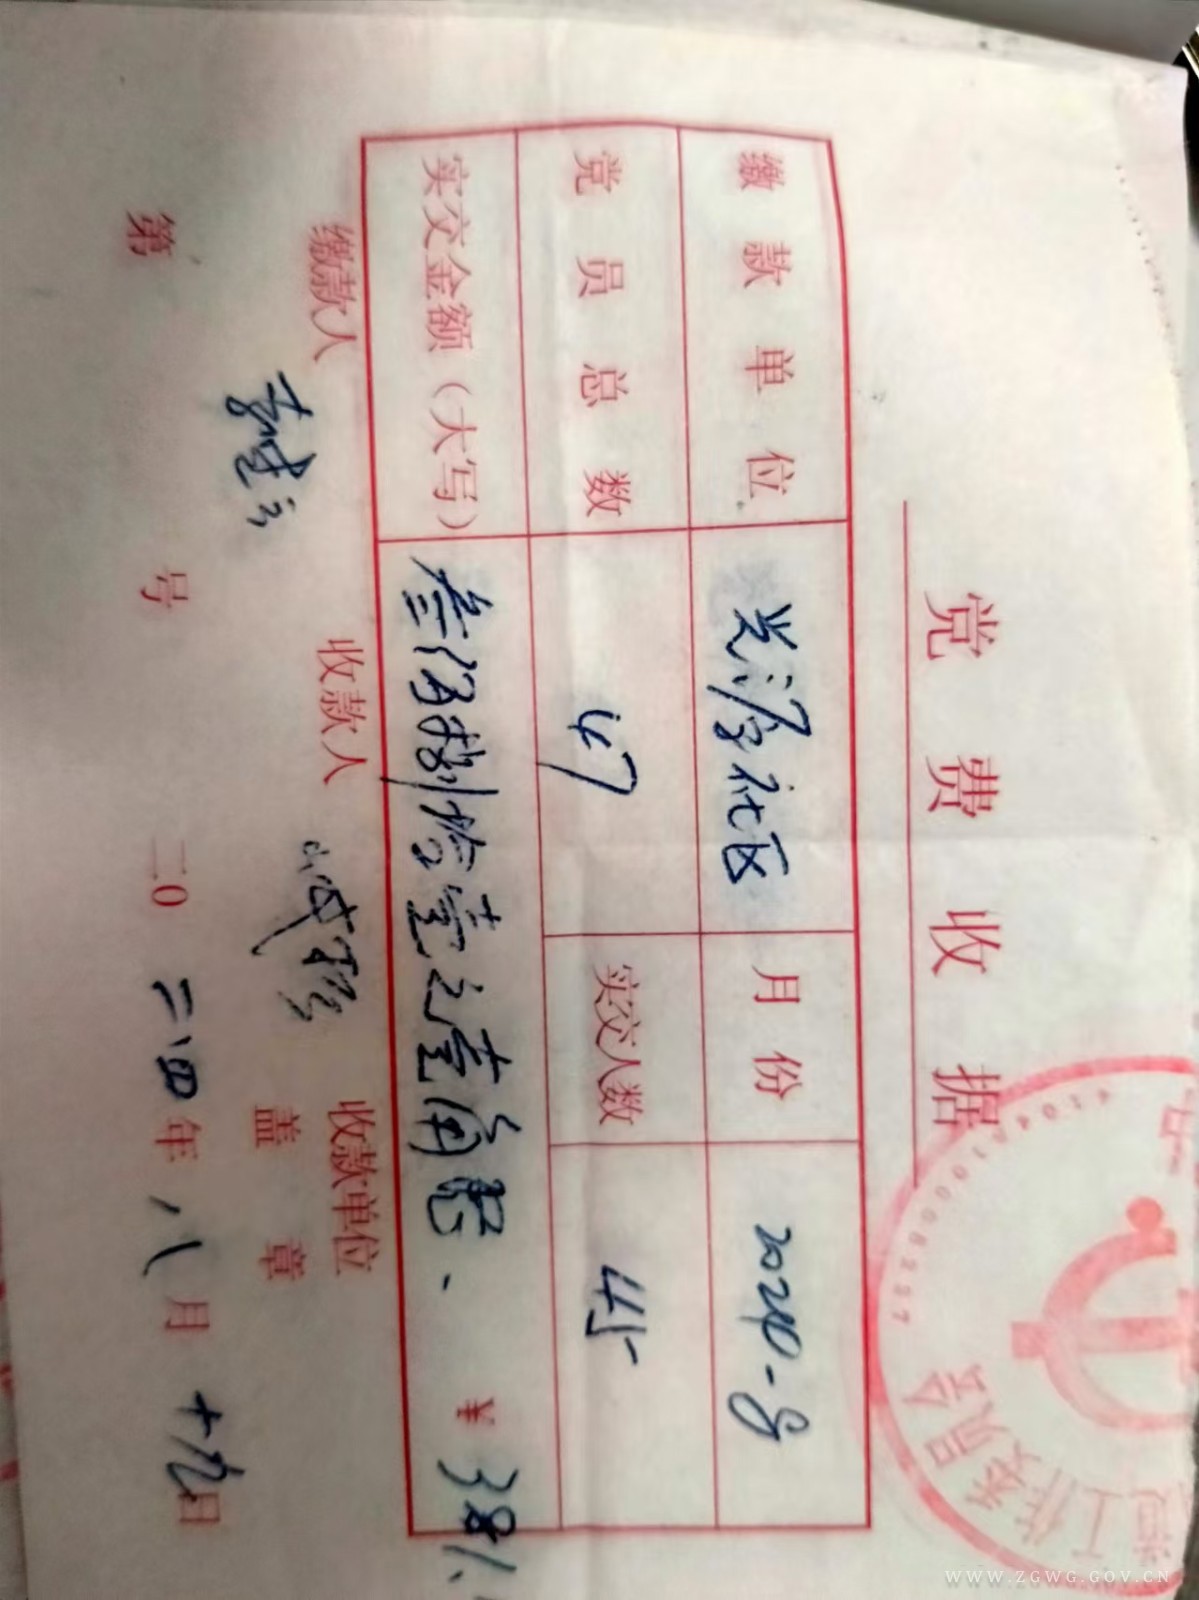 党费收据
缴款单位 兴源社区 月份 2024-8
党员总数 47 实交人数 45
实交金额(大写) 叁佰捌拾壹元壹角 ¥ 381.
缴款人 收款人 收款单位
盖章
第 号 二0二四年八月十九日
工作委员会
41041100062257
WWW.ZGWG.GOV.CN